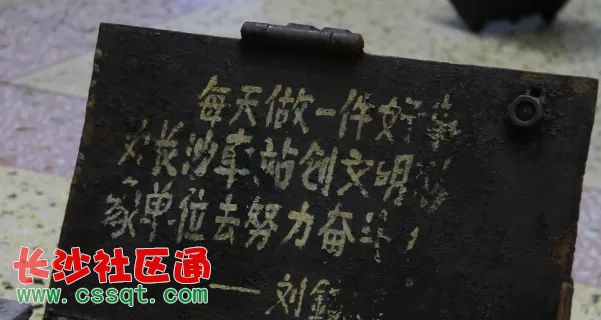 每天做一件好事
为长沙车站创文明
家单位去努力奋斗,
——刘
长沙社区通
www.cssqt.com